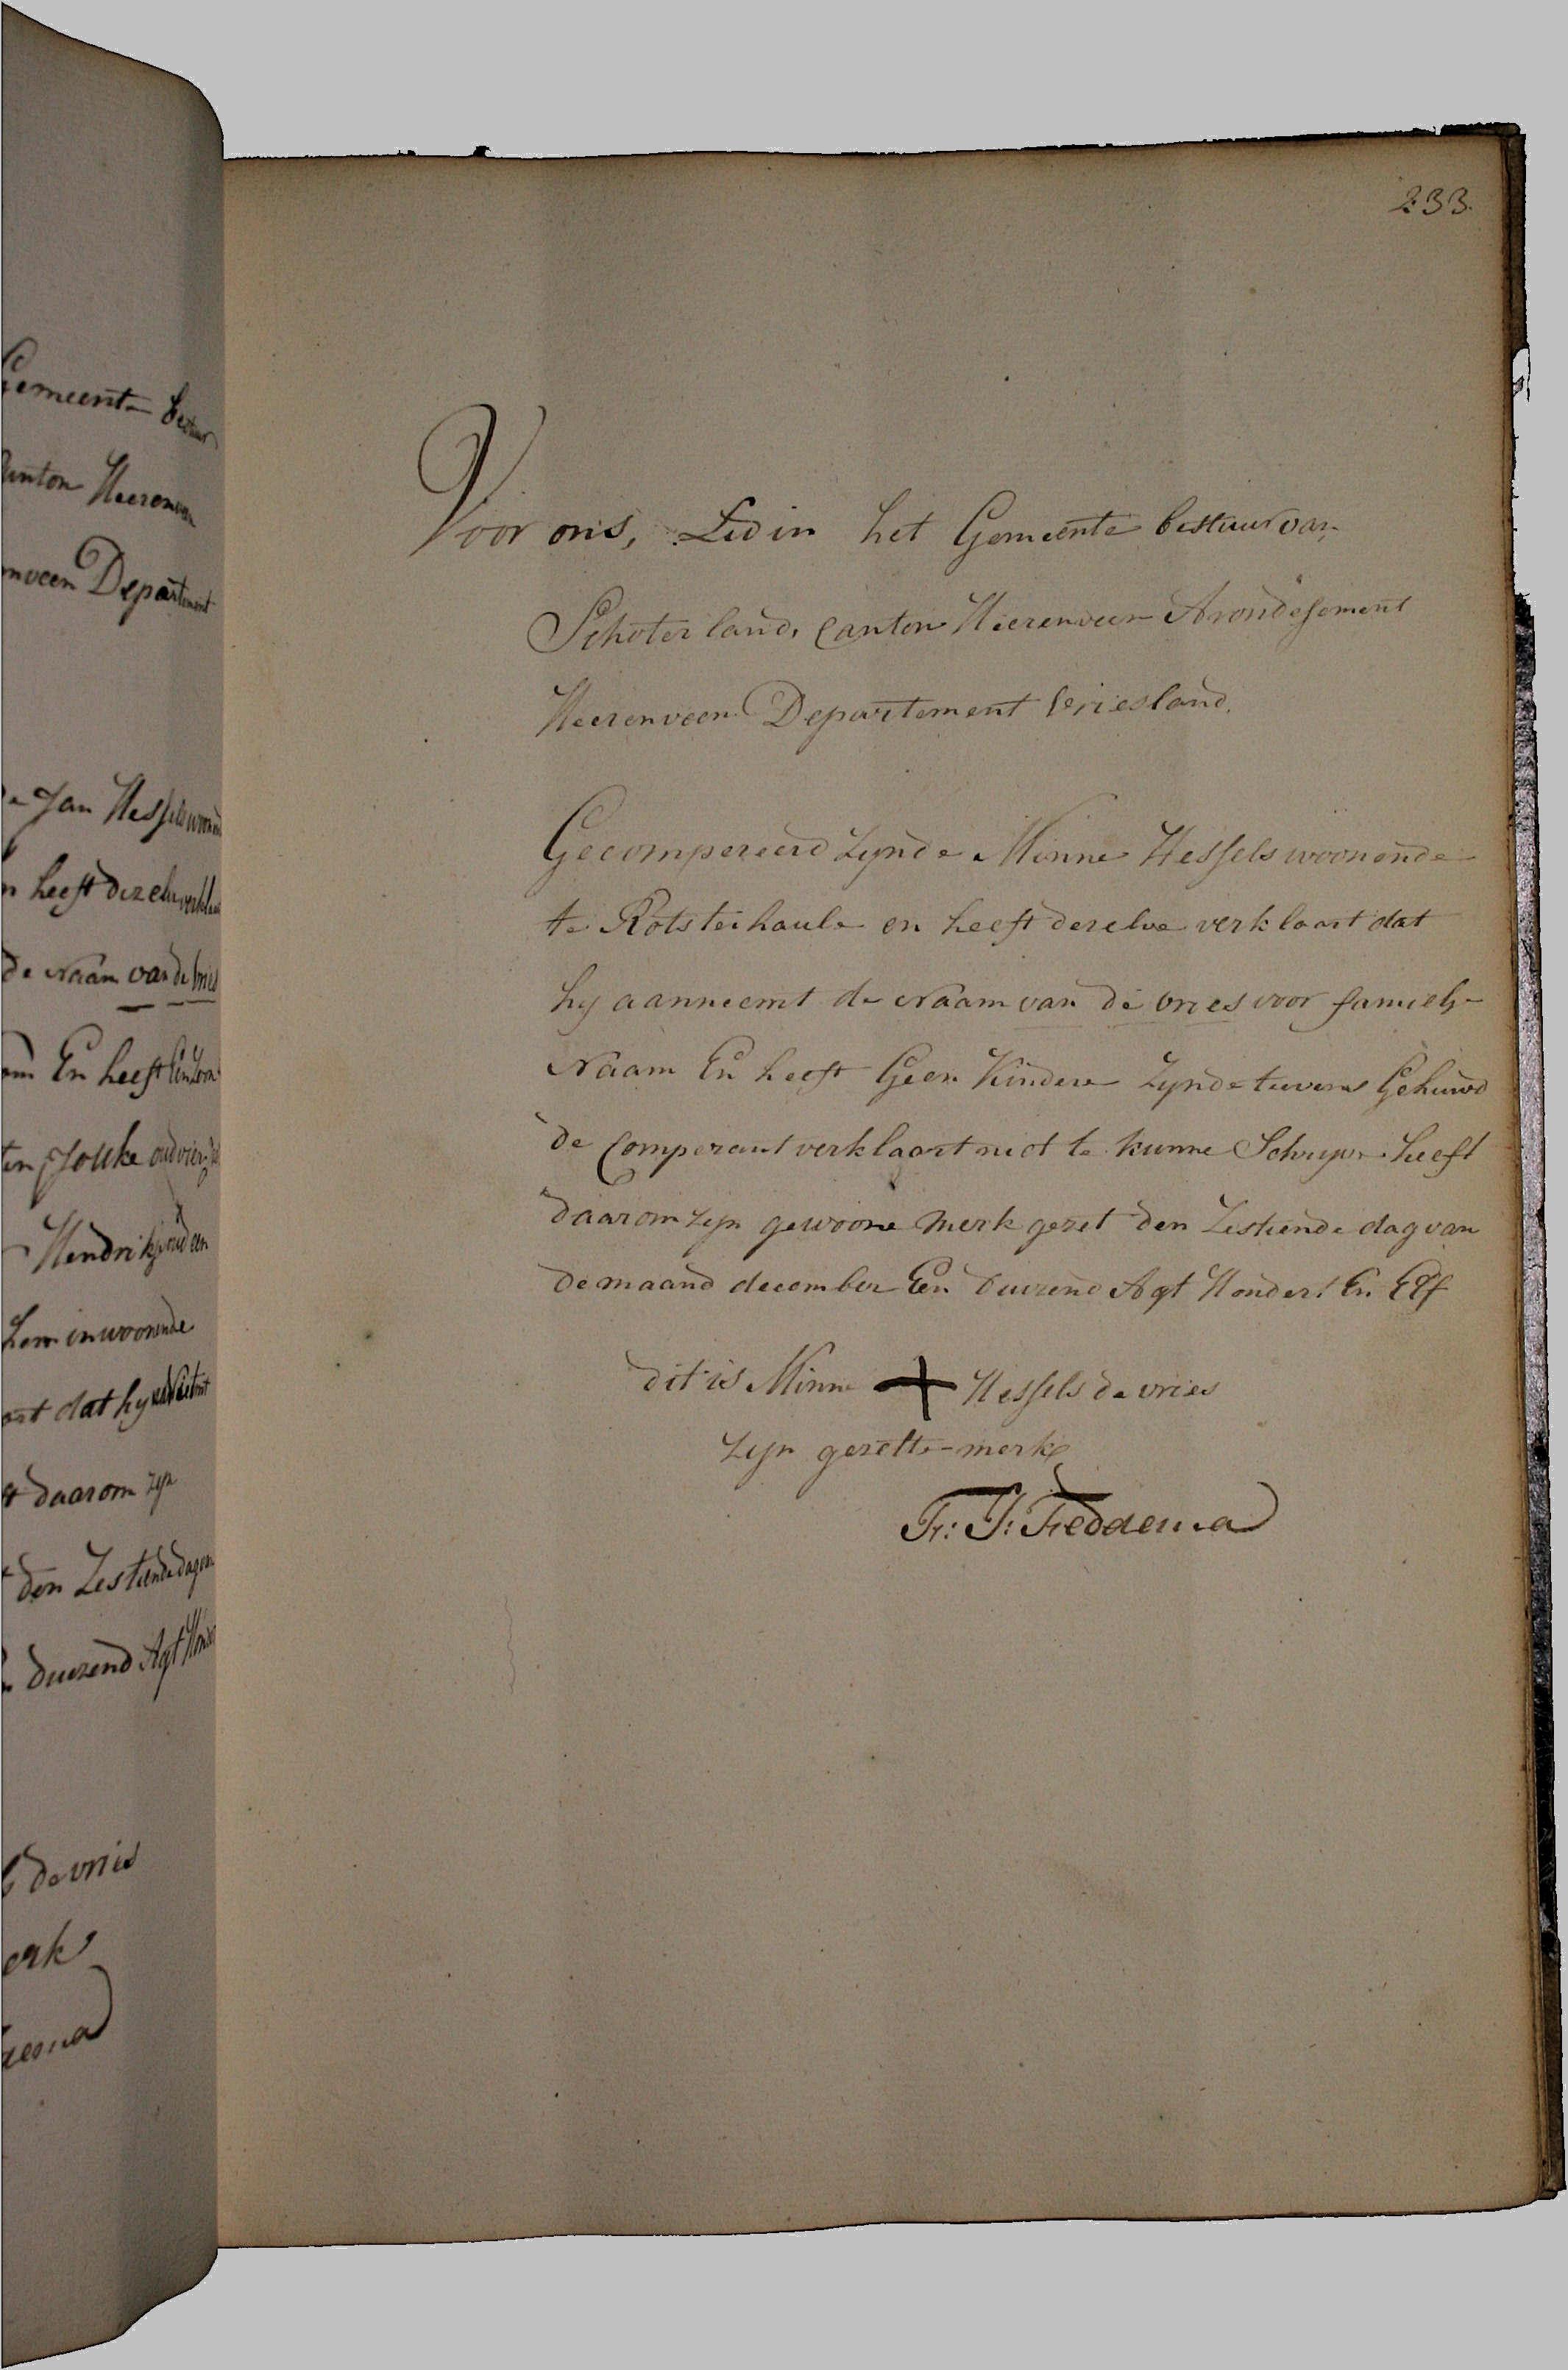 233.
Voor ons, Lid in het Gemeente bestuur van
Schoterland, Canton Heerenveen Arondesement
Heerenveen Departement Vriesland.
Gecompereerd zynde Minne Hessels woonende
te Rotsterhaule en heeft derelve verklaart dat
hy aanneemt de Naam van de vries voor famiely
Naam En heeft Geen Kindere zynde tevens Gehuwd
de Comperant verklaart niet te kunne Schryve heeft
daarom zyn gewoone merk gezet den Zestiende dag van
de maand december Een duizend Agt Hondert En Elf
dit is Minne + Hessels de vries
zyn gezette merk
Fr: J: Feddema
Gemeente bestuur
Canton Heerenveen
Departement
Jan Hessels
heeft dezelve
de Naam van de vries
En heeft Een Zoon
Jouke oud vier
Hendrik oud een
inwoonende
dat hy
daarom zyn
den Zestiende dag van
duizend Agt
de vries